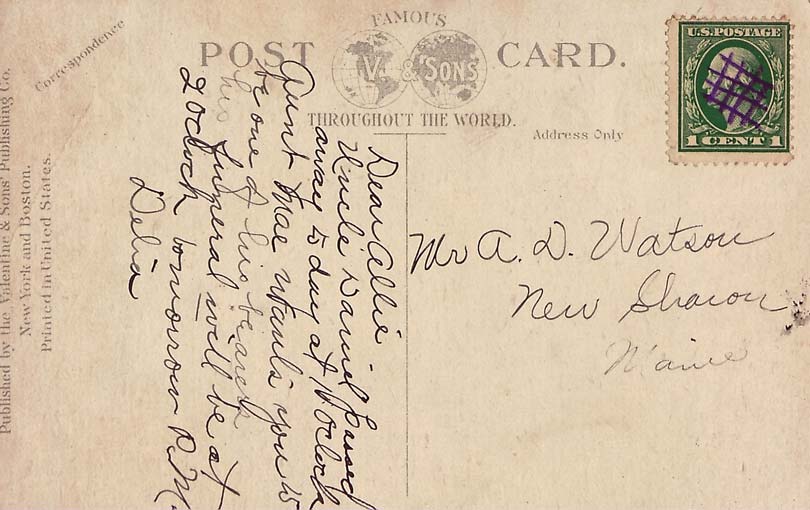 Published by the Valentine & Sons' Publishing Co.
New York and Boston.
Printed in United States.
Correspondence
FAMOUS
POST CARD.
V. & SONS
THROUGHOUT THE WORLD.
Address Only
U.S. POSTAGE
1 CENT 1
Dear Allie
Uncle Daniel passed
away to day at 1 oclock
Aunt Mae wants you to
be one of his bearers
his funeral will be at
2 oclock tomorrow P.M.
Delia
Mr A. D. Watson
New Sharon
Maine